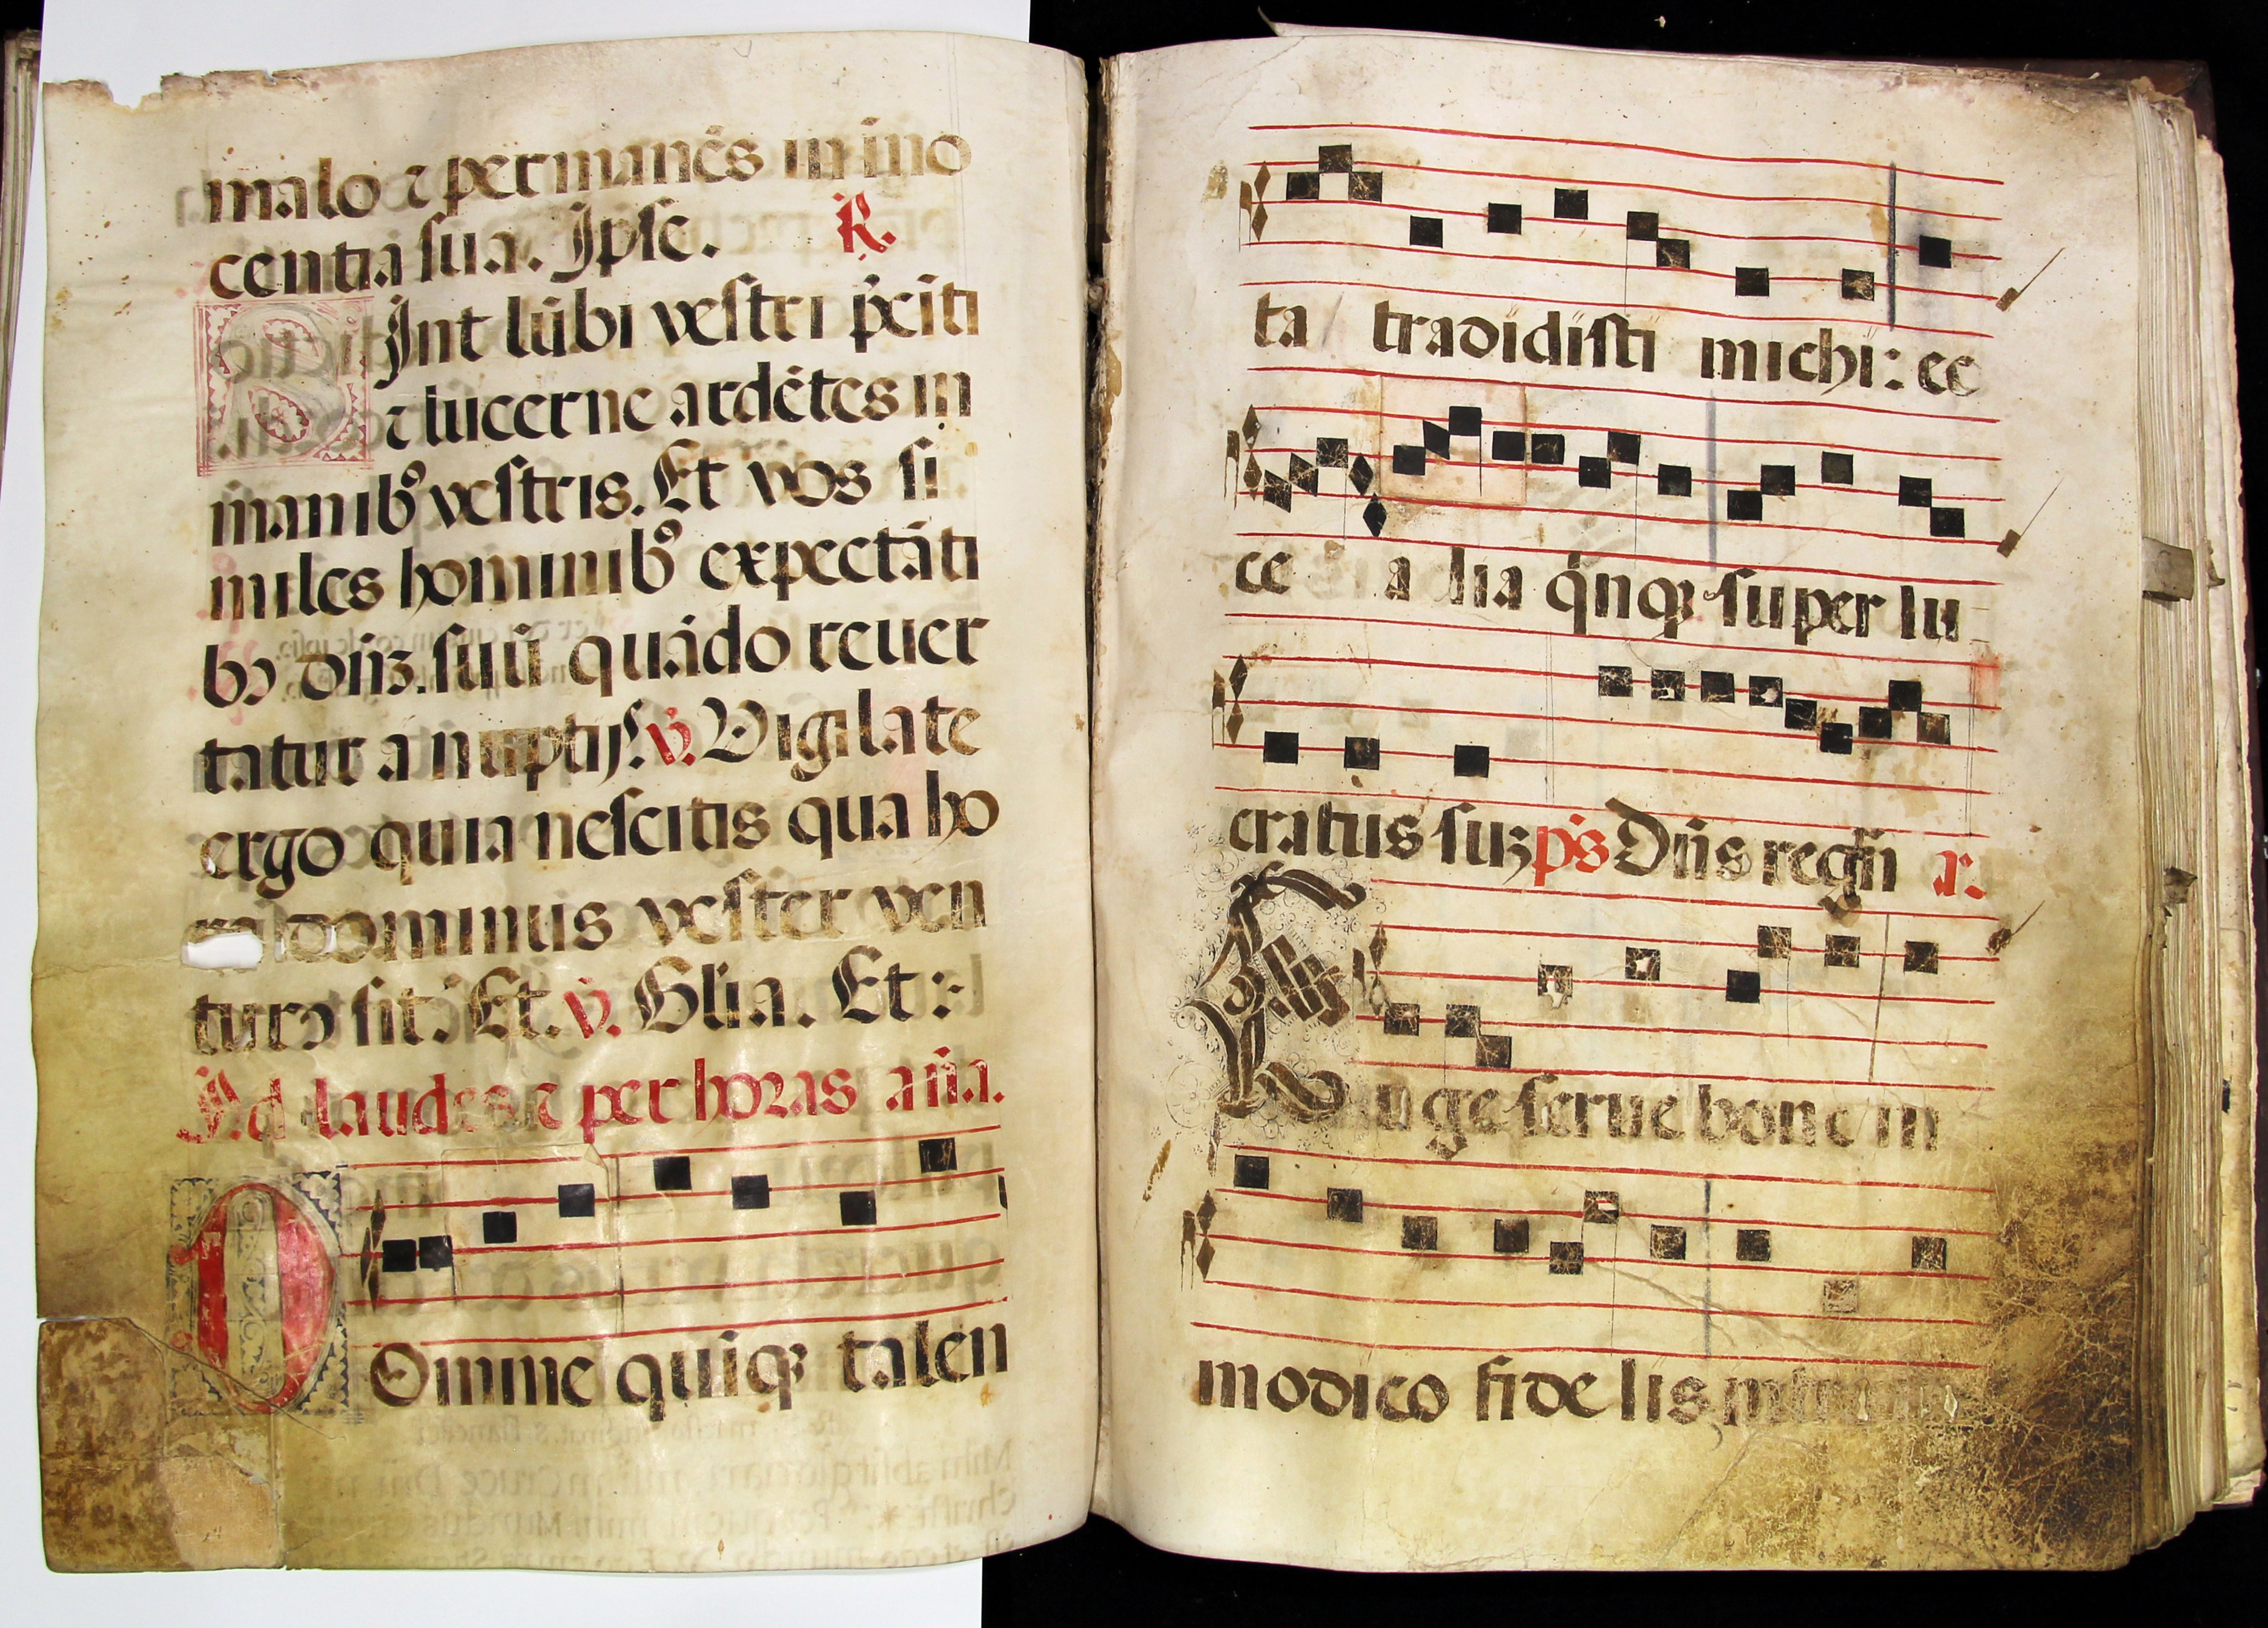 malo ⁊ permanēs in īno
centia sua. Ipse. R.
SInt lūbi vestri p̄citi
⁊ lucerne ardētes in
manibꝰ vestris. Et vos si
miles hominibꝰ expectāti
bꝰ dn̄ʒ. suū quādo reuer
tatur a nuptijs. v̄. Vigilate
ergo quia nescitis qua ho
dominus vester ven
turꝰ sit. Et. v̄. Glīa. Et:
Ad laudes ⁊ per horas an̄a.
DOmine quiqꝫ talen
ta tradidisti michi: ec
ce alia q̇nqꝫ super lu
cratus suʒ p̄s Dn̄s regn̄ r.
Euge serue bone in
modico fidelis